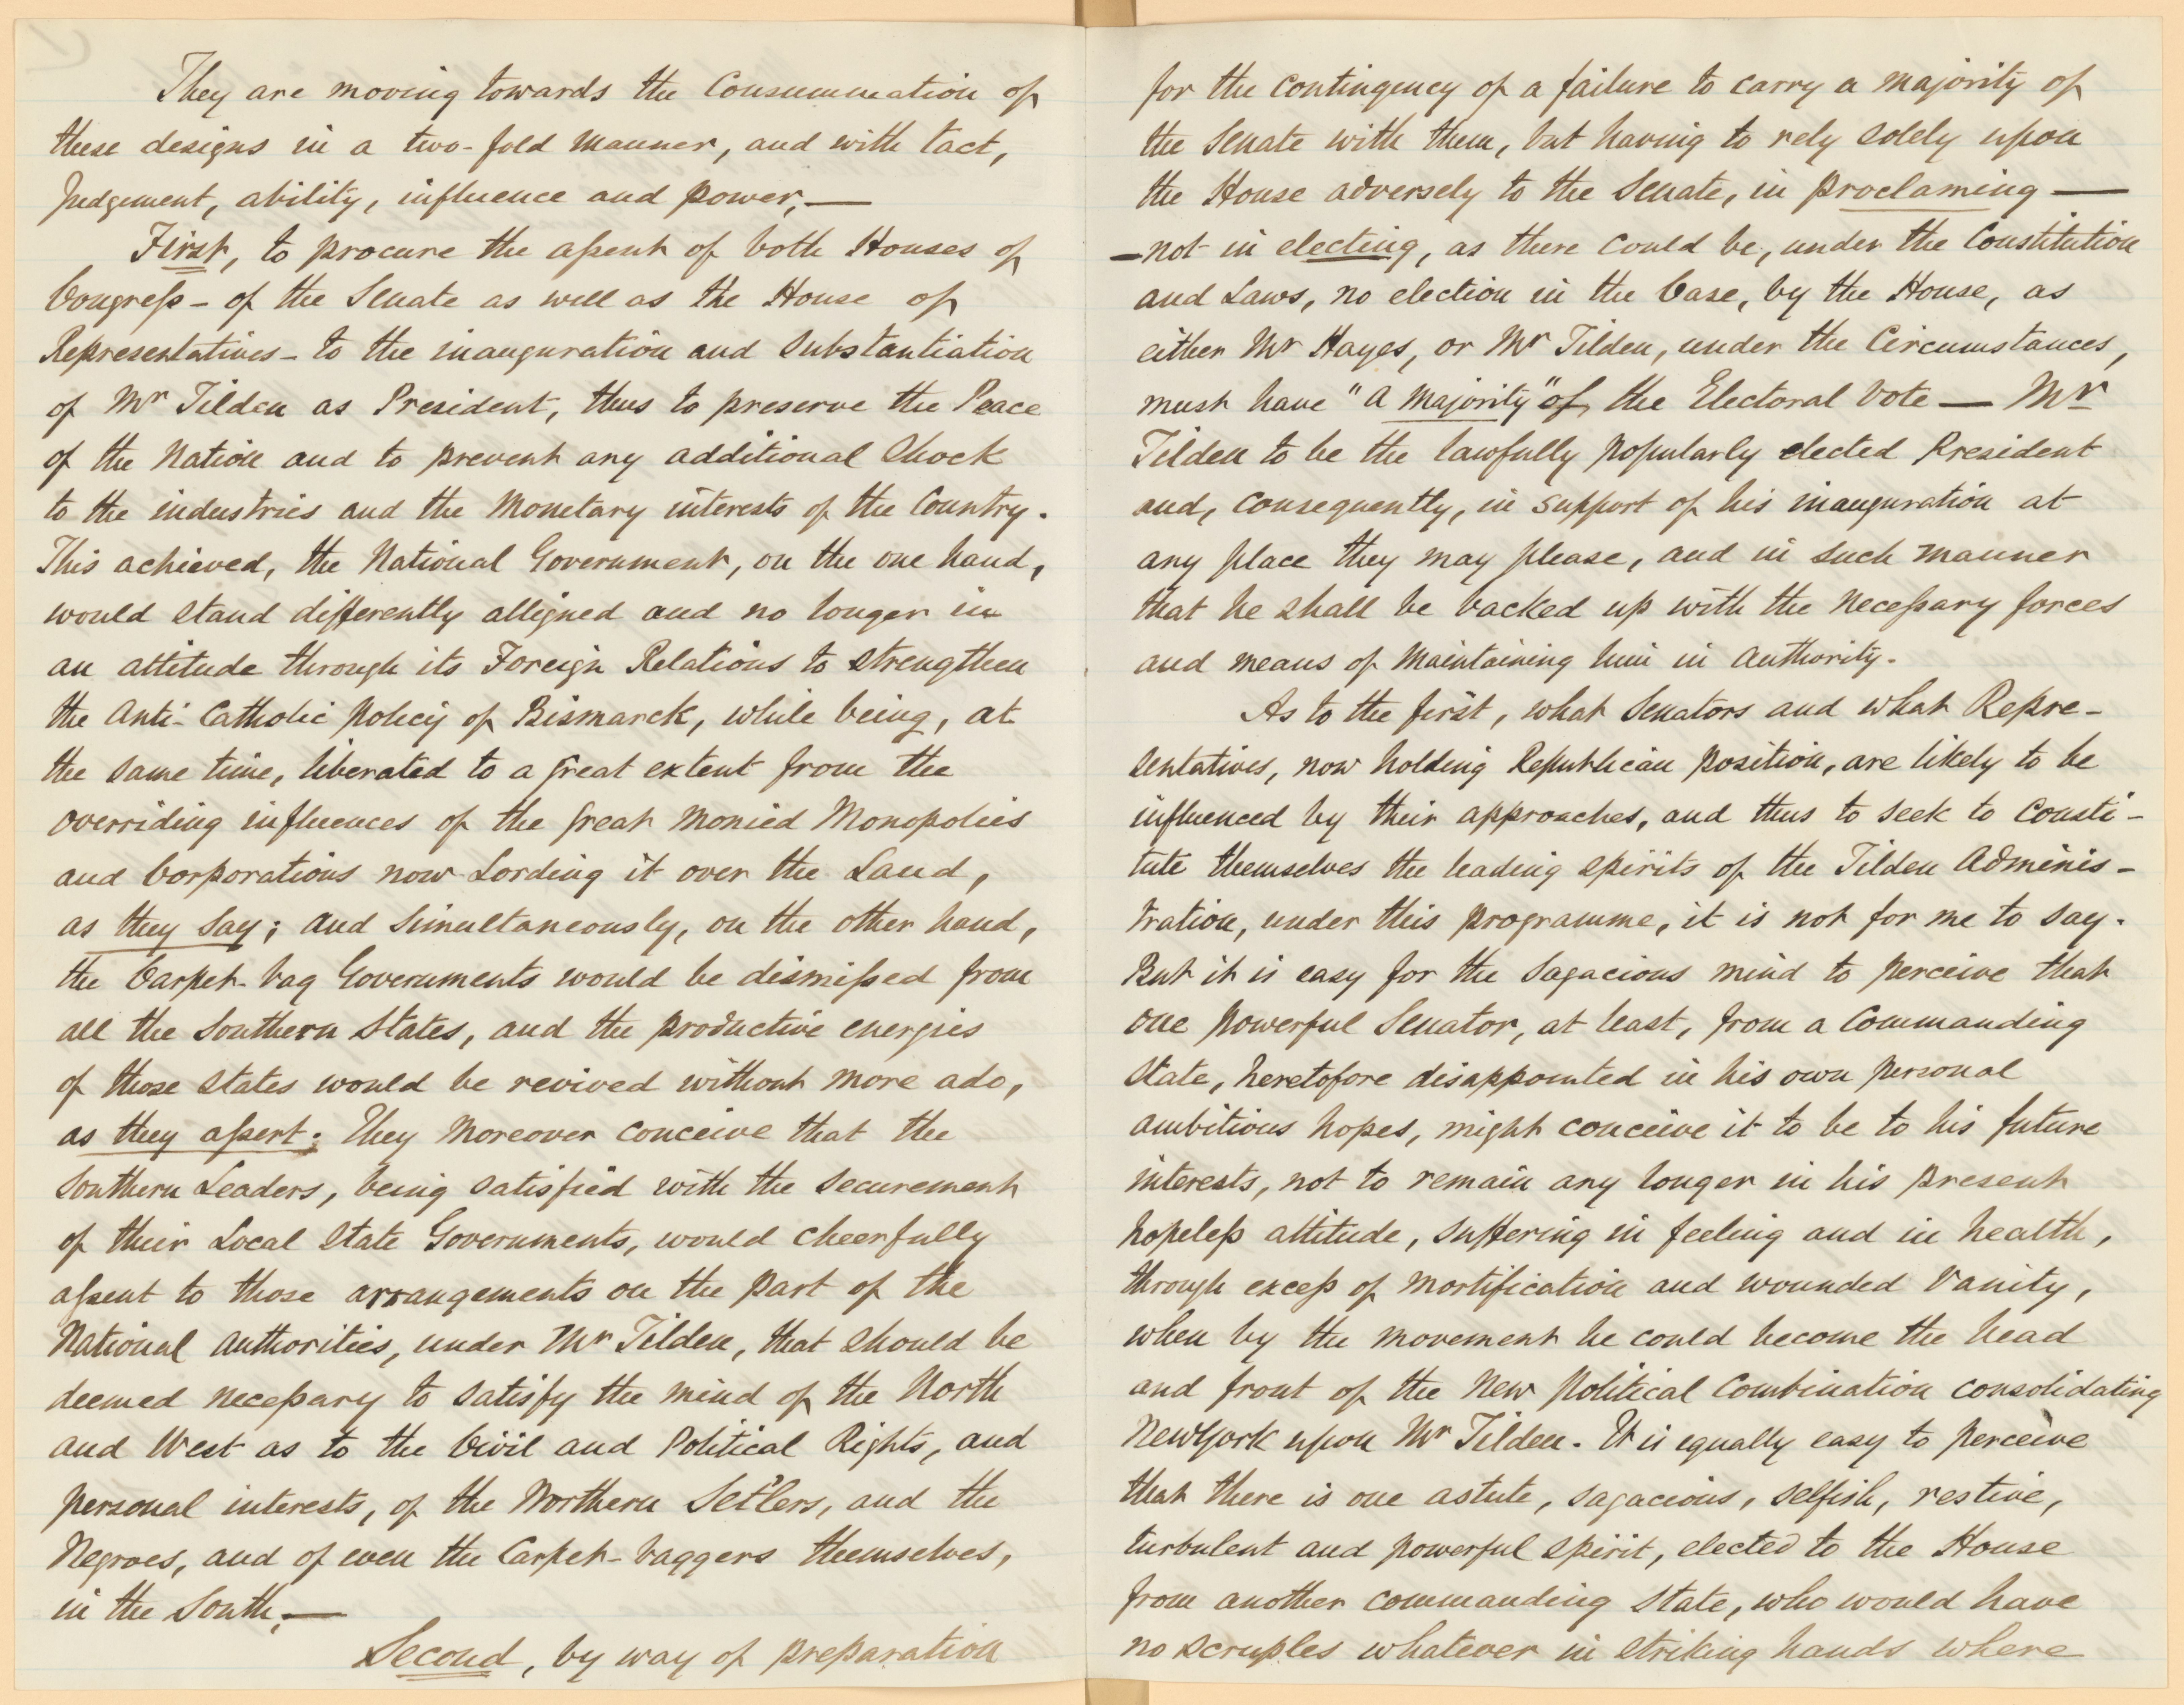 They are moving towards the Consummation of
these designs in a two-fold manner, and with tact,
Judgement, ability, influence and power,—
First, to procure the assent of both Houses of
Congress - of the Senate as well as the House of
Representatives - to the inauguration and substantiation
of Mr Tilden as President, thus to preserve the Peace
of the Nation and to prevent any additional Shock
to the industries and the Monetary interests of the Country.
This achieved, the National Government, on the one hand,
would stand differently alligned and no longer in
an attitude through its Foreign Relations to strengthen
the Anti-Catholic policy of Bismarck, while being, at
the same time, liberated to a great extent from the
overriding influences of the great monied Monopolies
and Corporations now Lording it over the Land,
as they say; and simultaneously, on the other hand,
the Carpet-bag Governments would be dismissed from
all the Southern States, and the productive energies
of those States would be revived without more ado,
as they assert. They moreover conceive that the
Southern Leaders, being satisfied with the securement
of their Local State Governments, would cheerfully
assent to those arrangements on the part of the
National authorities, under Mr Tilden, that should be
deemed necessary to satisfy the mind of the North
and West as to the Civil and Political Rights, and
personal interests, of the Northern Settlers, and the
Negroes, and of even the Carpet-baggers themselves,
in the South,—
Second, by way of preparation
for the contingency of a failure to carry a majority of
the Senate with them, but having to rely solely upon
the House adversely to the Senate, in proclaming —
— not in electing, as there could be, under the Constitution
and Laws, no election in the Case, by the House, as
either Mr Hayes, or Mr Tilden, under the Circumstances,
must have "a majority" of the Electoral Vote — Mr
Tilden to be the lawfully popularly elected President
and, consequently, in support of his inauguration at
any place they may please, and in such manner
that he shall be backed up with the necessary forces
and means of maintaining him in Authority.
As to the first, what Senators and what Repre-
sentatives, now holding Republican position, are likely to be
influenced by their approaches, and thus to seek to consti-
tute themselves the leading spirits of the Tilden Adminis-
tration, under this programme, it is not for me to say.
But it is easy for the sagacious mind to perceive that
one powerful Senator, at least, from a Commanding
State, heretofore disappointed in his own personal
ambitious hopes, might conceive it to be to his future
interests, not to remain any longer in his present
hopeless attitude, suffering in feeling and in health,
through excess of mortification and wounded vanity,
when by the movement he could become the head
and front of the New Political Combination consolidating
New York upon Mr Tilden. It is equally easy to perceive
that there is one astute, sagacious, selfish, restive,
turbulent and powerful spirit, elected to the House
from another commanding State, who would have
no scruples whatever in striking hands where